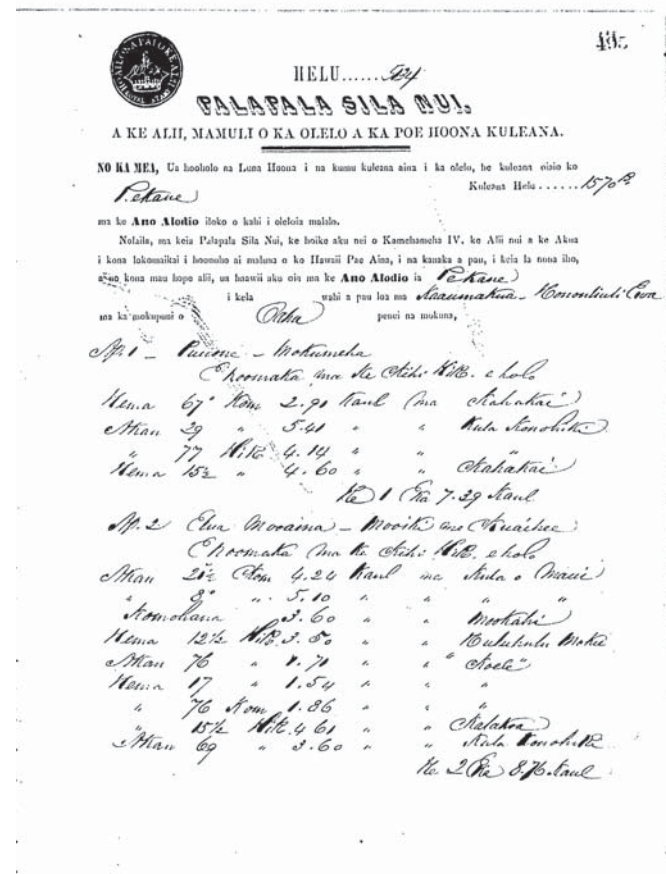 495
HELU......524
PALAPALA SILA NUI,
A KE ALII, MAMULI O KA OLELO A KA POE HOONA KULEANA.
NO KA MEA, Ua hooholo na Luna Hoona i na kumu kuleana aina i ka olelo, he kuleana oiaio ko
Pekane
Kuleana Helu......1570
ma ke Ano Alodio iloko o kahi i oleloia malalo.
Nolaila, ma keia Palapala Sila Nui, ke hoike aku nei o Kamehameha IV. ke Alii nui a ke Akua
i kona lokomaikai i hoonoho ai maluna o ko Hawaii Pae Aina, i na kanaka a pau, i keia la nona iho,
a no kona mau hope alii, ua haawii aku oia ma ke Ano Alodio ia Pekane
i kela wahi a pau loa ma Kaaumakua - Honouliuli Ewa
ma ka mokupuni o Oahu penei na mokuna,
Ap. 1 - Puuone - Mokumeha
E hoomaka ma ke Kihi Hik. e holo
Hema 67° Kom 2.91 Kaul ma Kahakai
Akau 29 " 5.41 " " Kula Konohiki
" 77 Hik 4.14 " " "
Hema 15½ " 4.60 " " Kahakai
He 1 Eka 7.29 Kaul
Ap. 2 Elua Mooaina - Mooiki me
E hoomaka ma ke Kihi Hik. e holo
Akau 21½ Kom 4.24 Kaul ma Kula o Maui
" 8° " 5.10 " " " "
Komohana 3.60 " " Mookahi
Hema 12½ Hik. 3.50 " "
Akau 76 " 1.71 " " "Koele"
Hema 17 " 1.54 " " "
" 76 Kom 1.86 " " "
" 15½ Hik. 4.61 " " Kalakoa
Akau 69 " 3.60 " " Kula Konohiki
He 2 Eka 8.76 Kaul